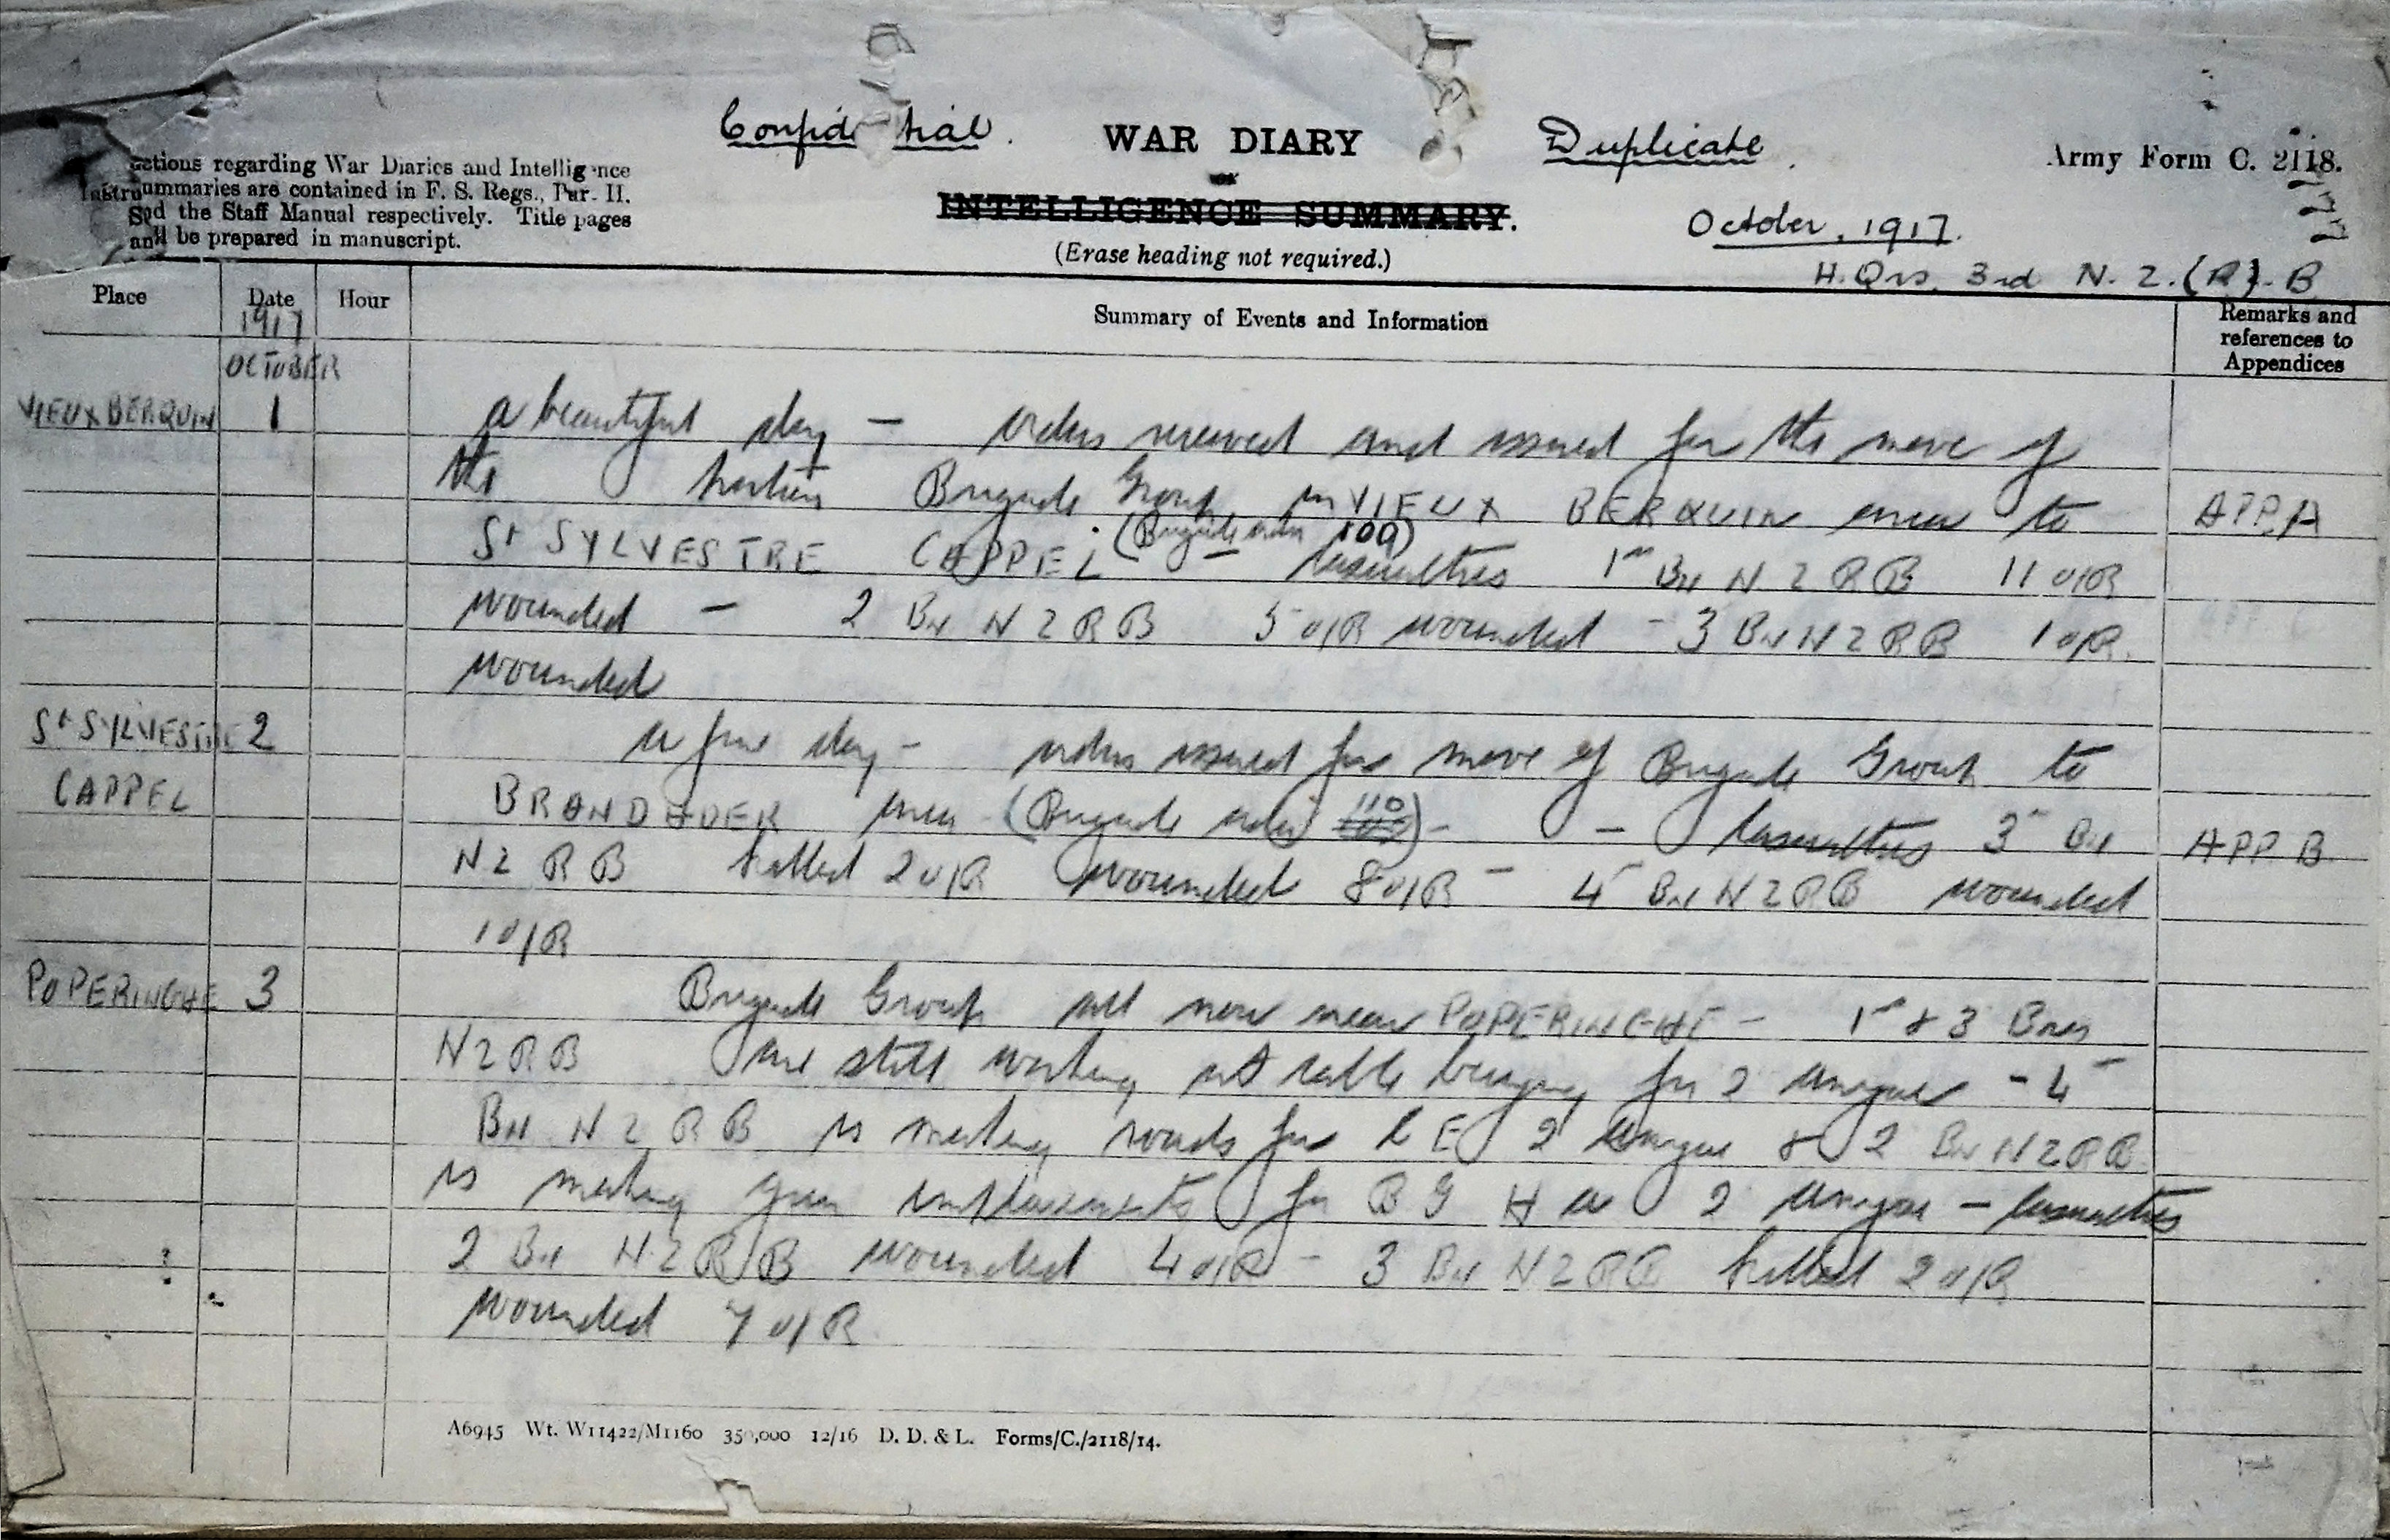 Confid tial.
WAR DIARY
or
INTELLIGENCE SUMMARY.
(Erase heading not required.)
Duplicate.
Army Form C. 2118.
October, 1917.
H.Qrs. 3rd N. Z. (R). B
ctions regarding War Diaries and Intelligence
Instru ummaries are contained in F. S. Regs., Par. II.
S d the Staff Manual respectively. Title pages
an ll be prepared in manuscript.
Place Date Hour Summary of Events and Information Remarks and references to Appendices
1917
OCTOBER
VIEUX BERQUIN 1 A beautiful day — orders received and issued for the move of
the portion Brigade Group in VIEUX BERQUIN area to APP. A
St SYLVESTRE CAPPEL. (Brigade order 109) — Casualties 1st Bn N Z R B 11 O/R
wounded — 2 Bn N Z R B 5 O/R wounded - 3 Bn N Z R B 1 O/R.
wounded
St SYLVESTRE 2 A fine day - orders issued for move of Brigade Group to
CAPPEL BRANDHOEK area (Brigade order 110) - — Casualties 3 Bn APP. B
N Z R B killed 2 O/R wounded 8 O/R - 4 Bn N Z R B wounded
1 O/R
POPERINGHE 3 Brigade Group all now near POPERINGHE - 1st & 3 Bns
N Z R B are still working at cable burying for 2 Anzac - 4
Bn N Z R B is making roads for C E 2 Anzac & 2 Bn N Z R B
is making gun emplacements for B G H A 2 Anzac - Casualties
2 Bn N Z R B wounded 4 O/R - 3 Bn N Z R B killed 2 O/R
wounded 7 O/R
A6945 Wt. W11422/M1160 350,000 12/16 D. D. & L. Forms/C./2118/14.